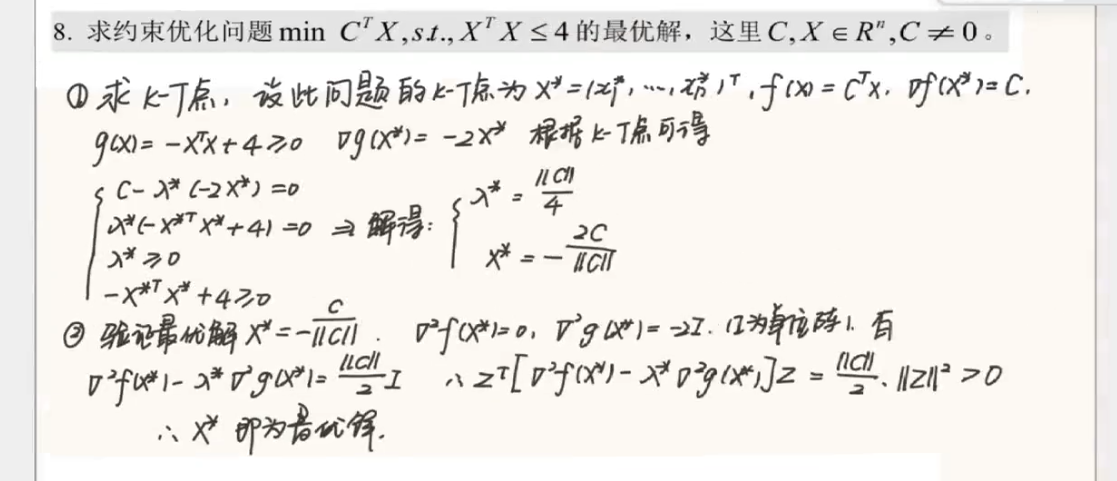 8. 求约束优化问题 min C^T X, s.t., X^T X ≤ 4 的最优解，这里 C, X ∈ R^n, C ≠ 0。
① 求 K-T点，设此问题的 K-T点为 X* = (x₁*, ···, xₙ*)^T, f(x) = C^T x, ∇f(X*) = C.
g(x) = -X^T X + 4 ≥ 0 ∇g(X*) = -2X* 根据 K-T点可得
{ C - λ*(-2X*) = 0
λ*(-X*^T X* + 4) = 0 ⇒ 解得: { λ* = ||C||/4
λ* ≥ 0 X* = - 2C/||C||
-X*^T X* + 4 ≥ 0
② 验证最优解 X* = - C/||C|| . ∇²f(X*) = 0, ∇²g(X*) = -2I. (I为单位阵). 有
∇²f(X*) - λ*∇²g(X*) = ||C||/2 I ∴ Z^T[∇²f(X*) - λ*∇²g(X*)]Z = ||C||/2 · ||Z||² > 0
∴ X* 即为最优解.